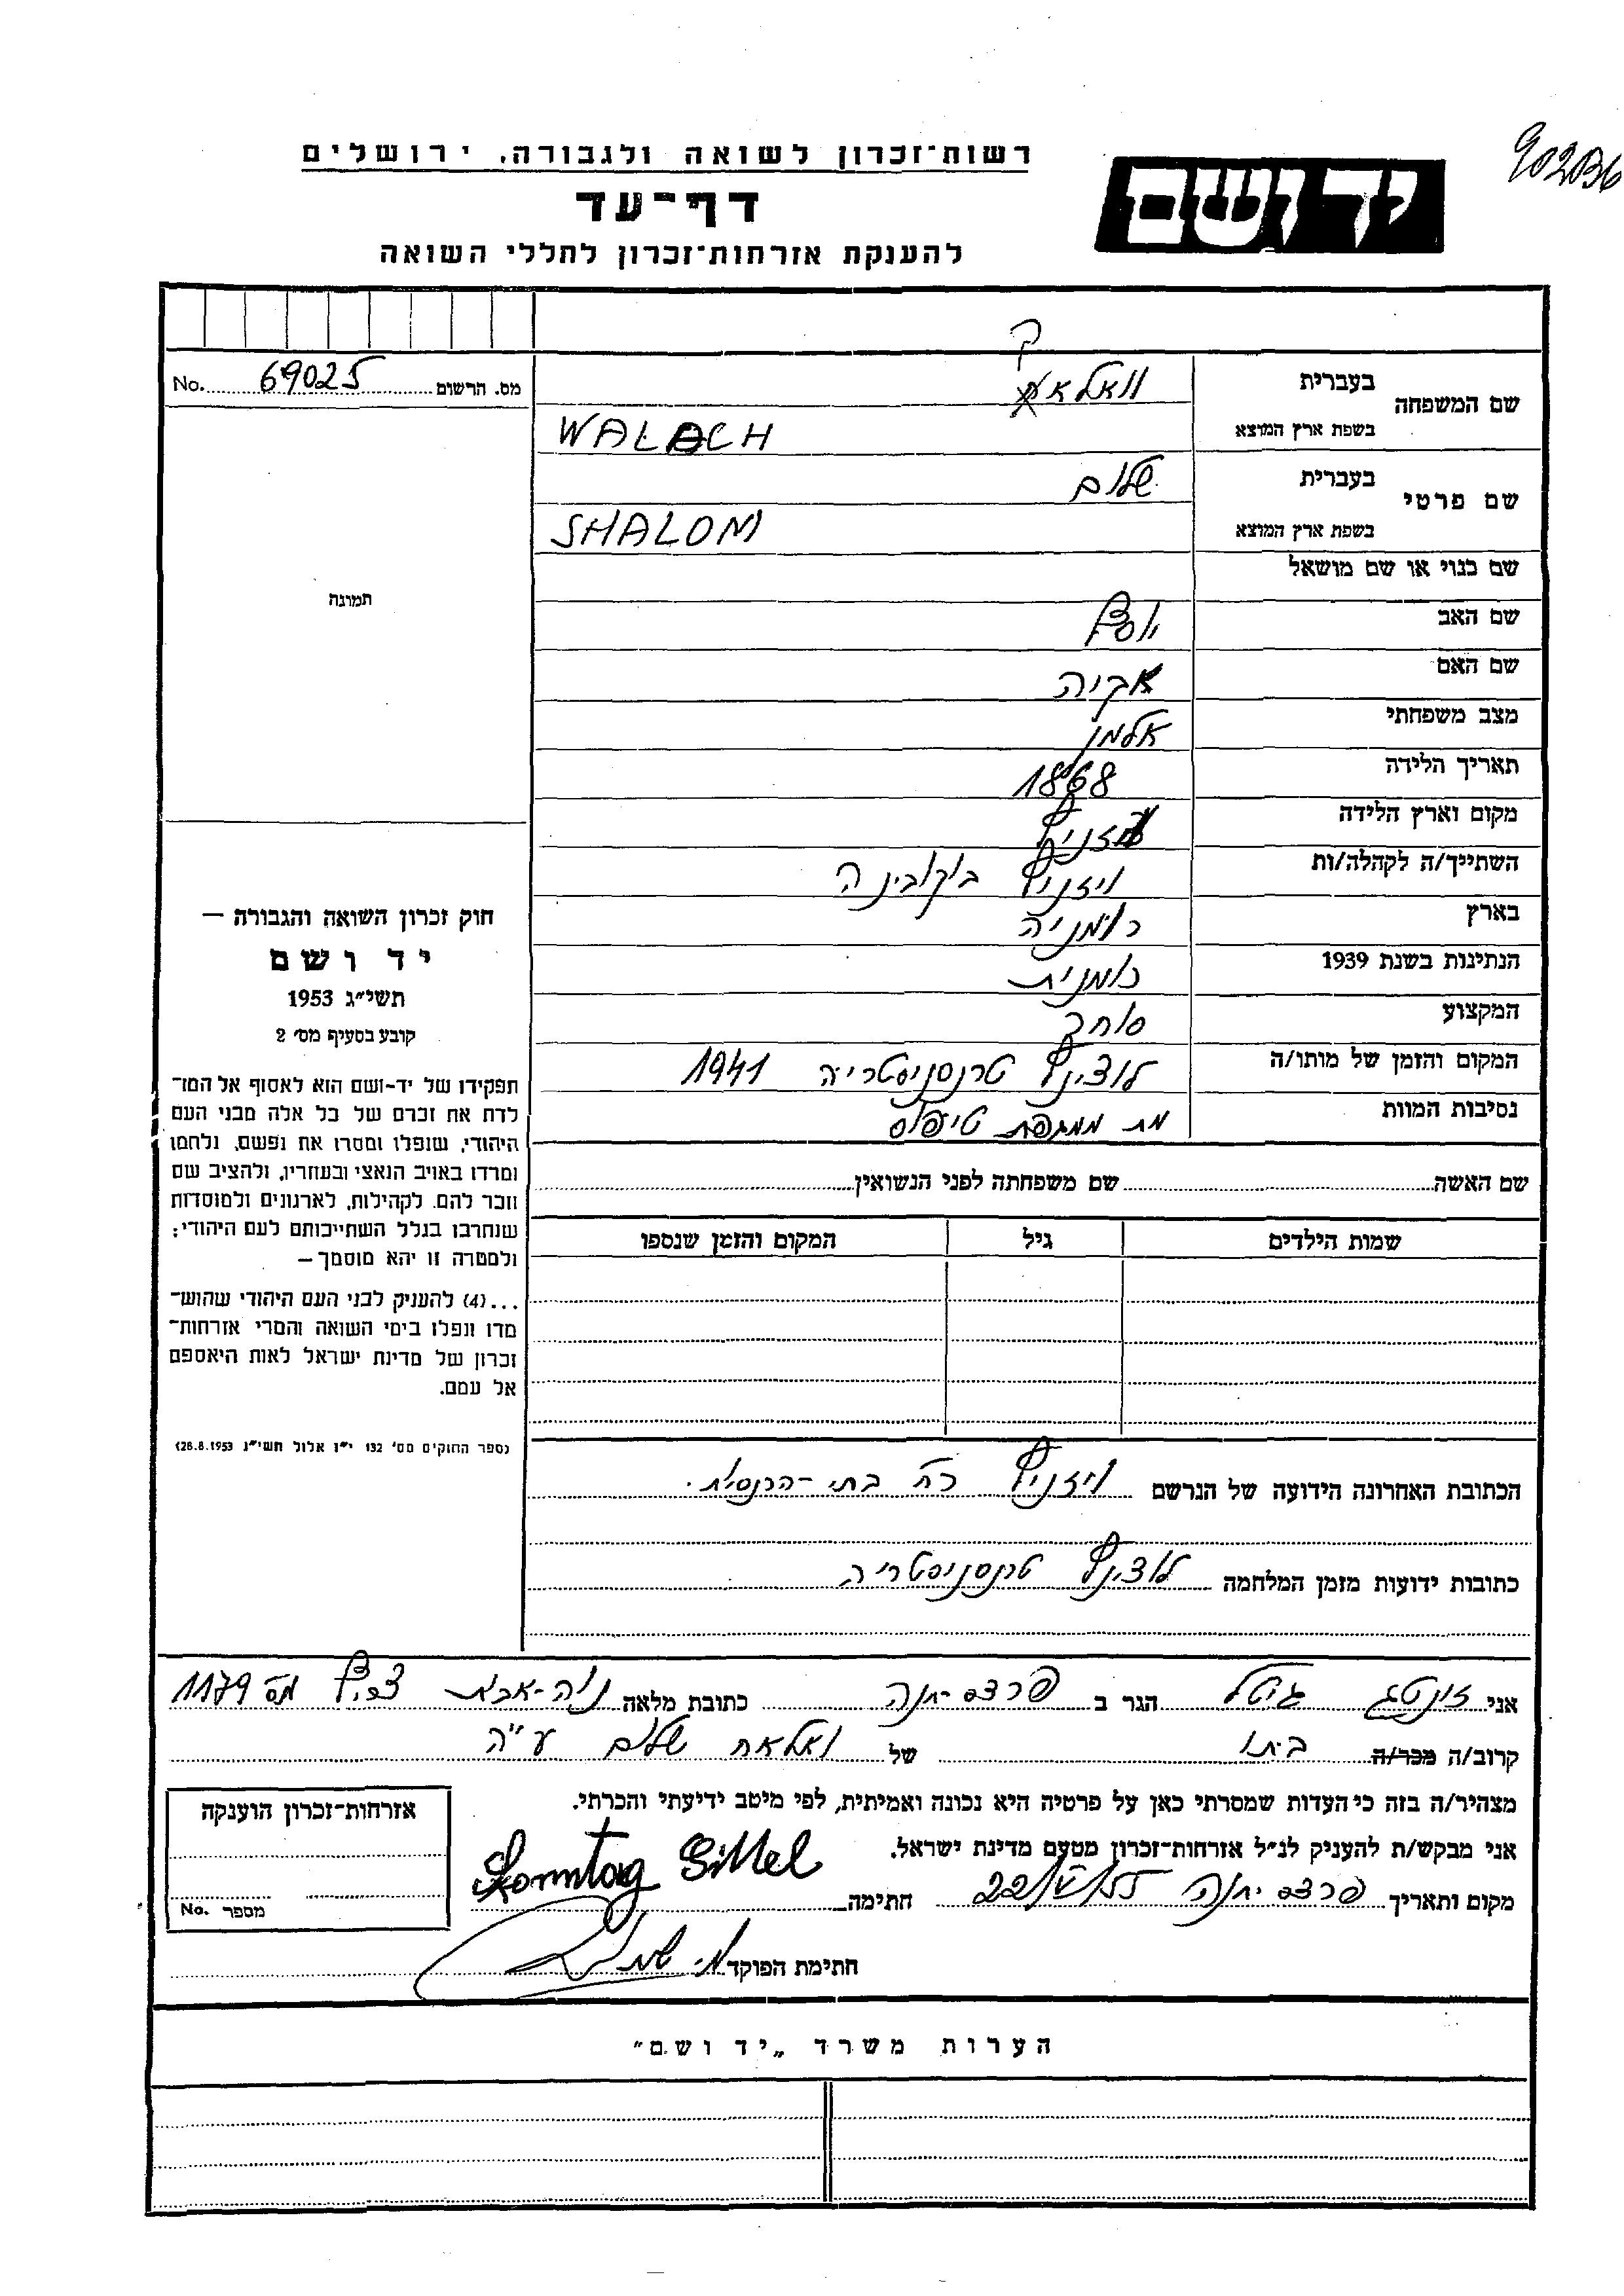 902B6
רשות־זכרון לשואה ולגבורה, ירושלים
יד ושם
דף־עד
להענקת אזרחות־זכרון לחללי השואה
No. 69025 מס. הרשום
שם המשפחה
בעברית וואלאך
בשפת ארץ המוצא WALACH
שם פרטי
בעברית שלום
בשפת ארץ המוצא SHALOM
שם כנוי או שם מושאל
שם האב יוסף
שם האם
מצב משפחתי אלמן
תאריך הלידה 1868
מקום וארץ הלידה ויזניץ
השתייך/ה לקהלה/ות ויזניץ בוקובינה
בארץ רומניה
הנתינות בשנת 1939 רומנית
המקצוע סוחר
המקום והזמן של מותו/ה לוצינץ טרנסניסטריה 1941
נסיבות המוות מת ממגפת טיפוס
תמונה
חוק זכרון השואה והגבורה —
יד ושם
תשי״ג 1953
קובע בסעיף מס׳ 2
תפקידו של יד-ושם הוא לאסוף אל המו־
לדת את זכרם של כל אלה מבני העם
היהודי, שנפלו ומסרו את נפשם, נלחמו
ומרדו באויב הנאצי ובעוזריו, ולהציב שם
וזכר להם, לקהילות, לארגונים ולמוסדות
שנחרבו בגלל השתייכותם לעם היהודי;
ולמטרה זו יהא מוסמך —
...(4) להעניק לבני העם היהודי שהוש־
מדו ונפלו בימי השואה והמרי אזרחות־
זכרון של מדינת ישראל לאות היאספם
אל עמם.
(ספר החוקים מס׳ 132 י״ז אלול תשי״ג 28.8.1953)
שם האשה שם משפחתה לפני הנשואין
שמות הילדים גיל המקום והזמן שנספו
הכתובת האחרונה הידועה של הנרשם ויזניץ רח׳ בתי-הכנסיות.
כתובות ידועות מזמן המלחמה לוצינץ טרנסניסטריה
אני זונטג גיטל הגר ב פרדס-חנה כתובת מלאה נוה-אבות צריף מס 1179
קרוב/ה מכר/ה בתו של ואלאח שלום ע״ה
מצהיר/ה בזה כי העדות שמסרתי כאן על פרטיה היא נכונה ואמיתית, לפי מיטב ידיעתי והכרתי.
אני מבקש/ת להעניק לנ״ל אזרחות־זכרון מטעם מדינת ישראל.
מקום ותאריך פרדס-חנה 22/V/55 חתימה Sonntag Gittel
חתימת הפוקד
אזרחות־זכרון הוענקה
מספר No.
הערות משרד „יד ושם״